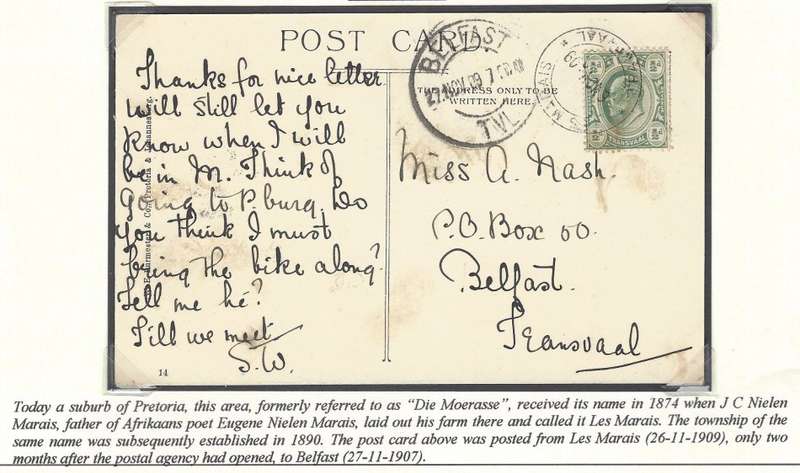 POST CARD.
Thanks for nice letter
will still let you
know when I will
be in M. Think of
going to P.burg. Do
you think I must
bring the bike along?
Tell me hé?
Till we meet
S.W.
14
THE ADDRESS ONLY TO BE
WRITTEN HERE.
BELFAST
27 NOV 09
TVL
MARAIS
TRANSVAAL
Miss A. Nash.
P.O. Box 00.
Belfast.
Transvaal
Today a suburb of Pretoria, this area, formerly referred to as "Die Moerasse", received its name in 1874 when J C Nielen
Marais, father of Afrikaans poet Eugene Nielen Marais, laid out his farm there and called it Les Marais. The township of the
same name was subsequently established in 1890. The post card above was posted from Les Marais (26-11-1909), only two
months after the postal agency had opened, to Belfast (27-11-1907).